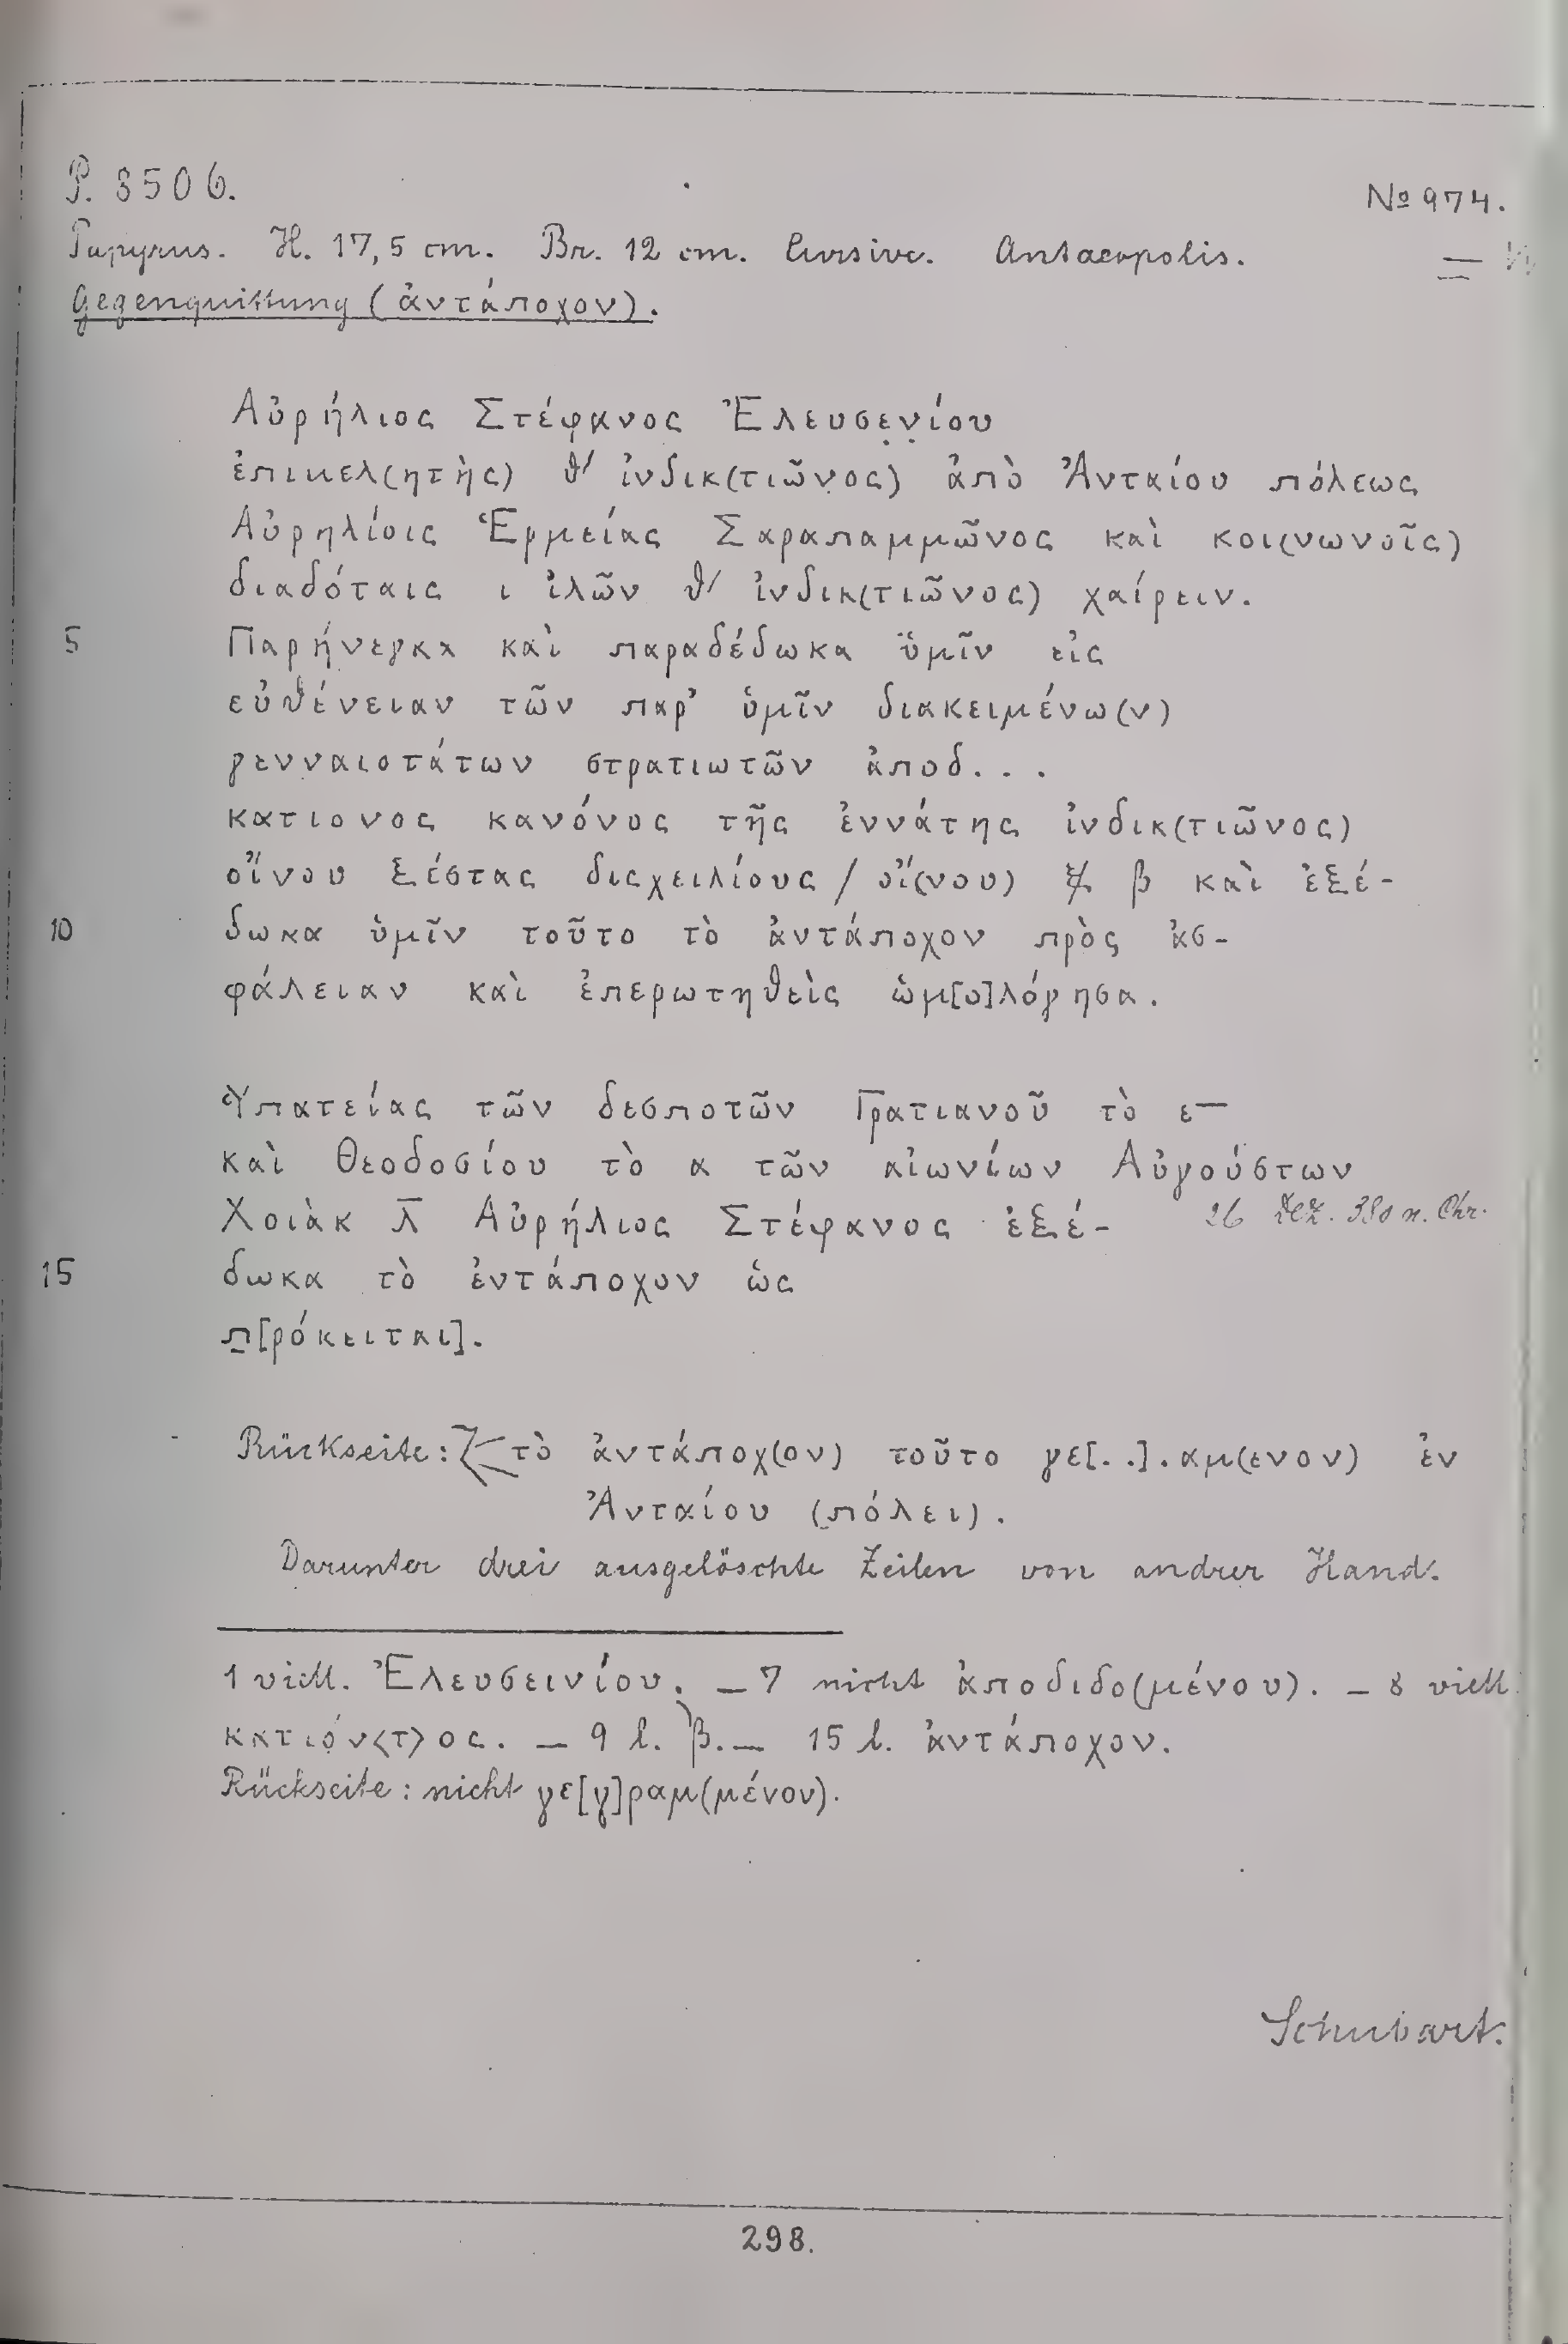 P. 8506.
№ 974.
Papyrus. H. 17,5 cm. Br. 12 cm. Cursive. Antaeopolis.
Gegenquittung (ἀντάποχον).
Αὐρήλιος Στέφανος Ἐλευσε̣ν̣ίου
ἐπιμελ(ητὴς) θ/ ἰνδικ(τιῶνος) ἀπὸ Ἀνταίου πόλεως
Αὐρηλίοις Ἑρμείας Σαραπαμμῶνος καὶ κοι(νωνοῖς)
διαδόταις ι ἰλῶν θ/ ἰνδικ(τιῶνος) χαίρειν.
5 Παρήνεγκα καὶ παραδέδωκα ὑ̈μῖν εἰς
εὐθένειαν τῶν παρ' ὑμῖν διακειμένω(ν)
γενναιοτάτων στρατιωτῶν ἀποδ...
κατιονος κανόνος τῆς ἐννάτης ἰνδικ(τιῶνος)
οἴνου ξέστας δισχειλίους / οἴ(νου) ξ β καὶ ἐξέ-
10 δωκα ὑμῖν τοῦτο τὸ ἀντάποχον πρὸς ἀσ-
φάλειαν καὶ ἐπερωτηθεὶς ὡμ[ο]λόγησα.
Ὑπατείας τῶν δεσποτῶν Γρατιανοῦ τὸ ε—
καὶ Θεοδοσίου τὸ α τῶν αἰωνίων Αὐγούστων
Χοιὰκ λ̅ Αὐρήλιος Στέφανος ἐξέ- 26 Dez. 380 n. Chr.
15 δωκα τὸ ἐντάποχον ὡς
π̣[ρόκειται].
Rückseite: τὸ ἀντάποχ(ον) τοῦτο γε[..].αμ(ενον) ἐν
Ἀνταίου (πόλει).
Darunter drei ausgelöschte Zeilen von andrer Hand.
1 viell. Ἐλευσεινίου. — 7 nicht ἀποδιδο(μένου). — 8 viell.
κατιόν<τ>ος. — 9 l. ͵β. — 15 l. ἀντάποχον.
Rückseite: nicht γε[γ]ραμ(μένον).
Schubart.
298.